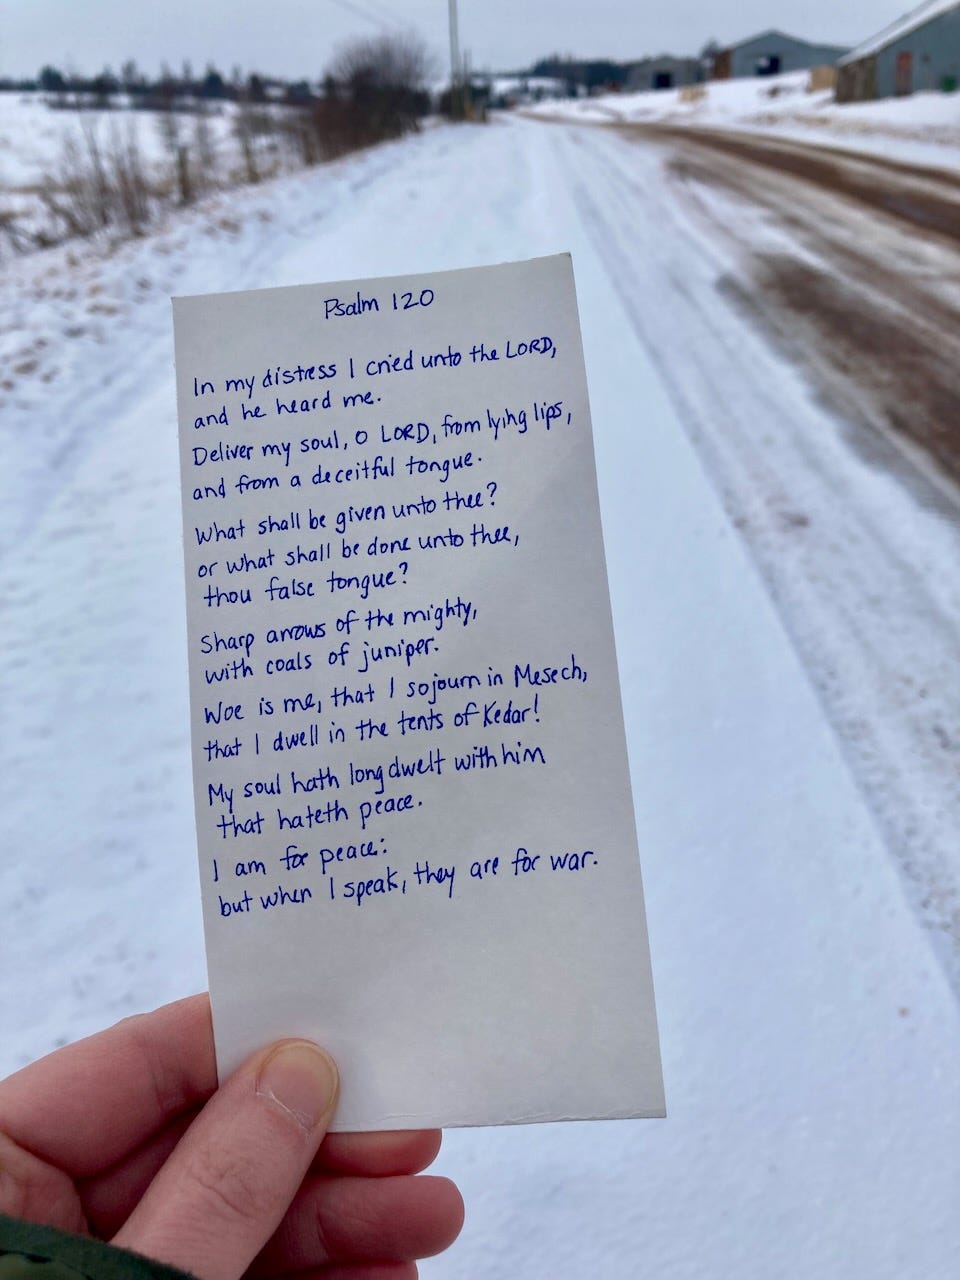 Psalm 120
In my distress I cried unto the LORD,
and he heard me.
Deliver my soul, O LORD, from lying lips,
and from a deceitful tongue.
What shall be given unto thee?
or what shall be done unto thee,
thou false tongue?
Sharp arrows of the mighty,
with coals of juniper.
Woe is me, that I sojourn in Mesech,
that I dwell in the tents of Kedar!
My soul hath long dwelt with him
that hateth peace.
I am for peace:
but when I speak, they are for war.